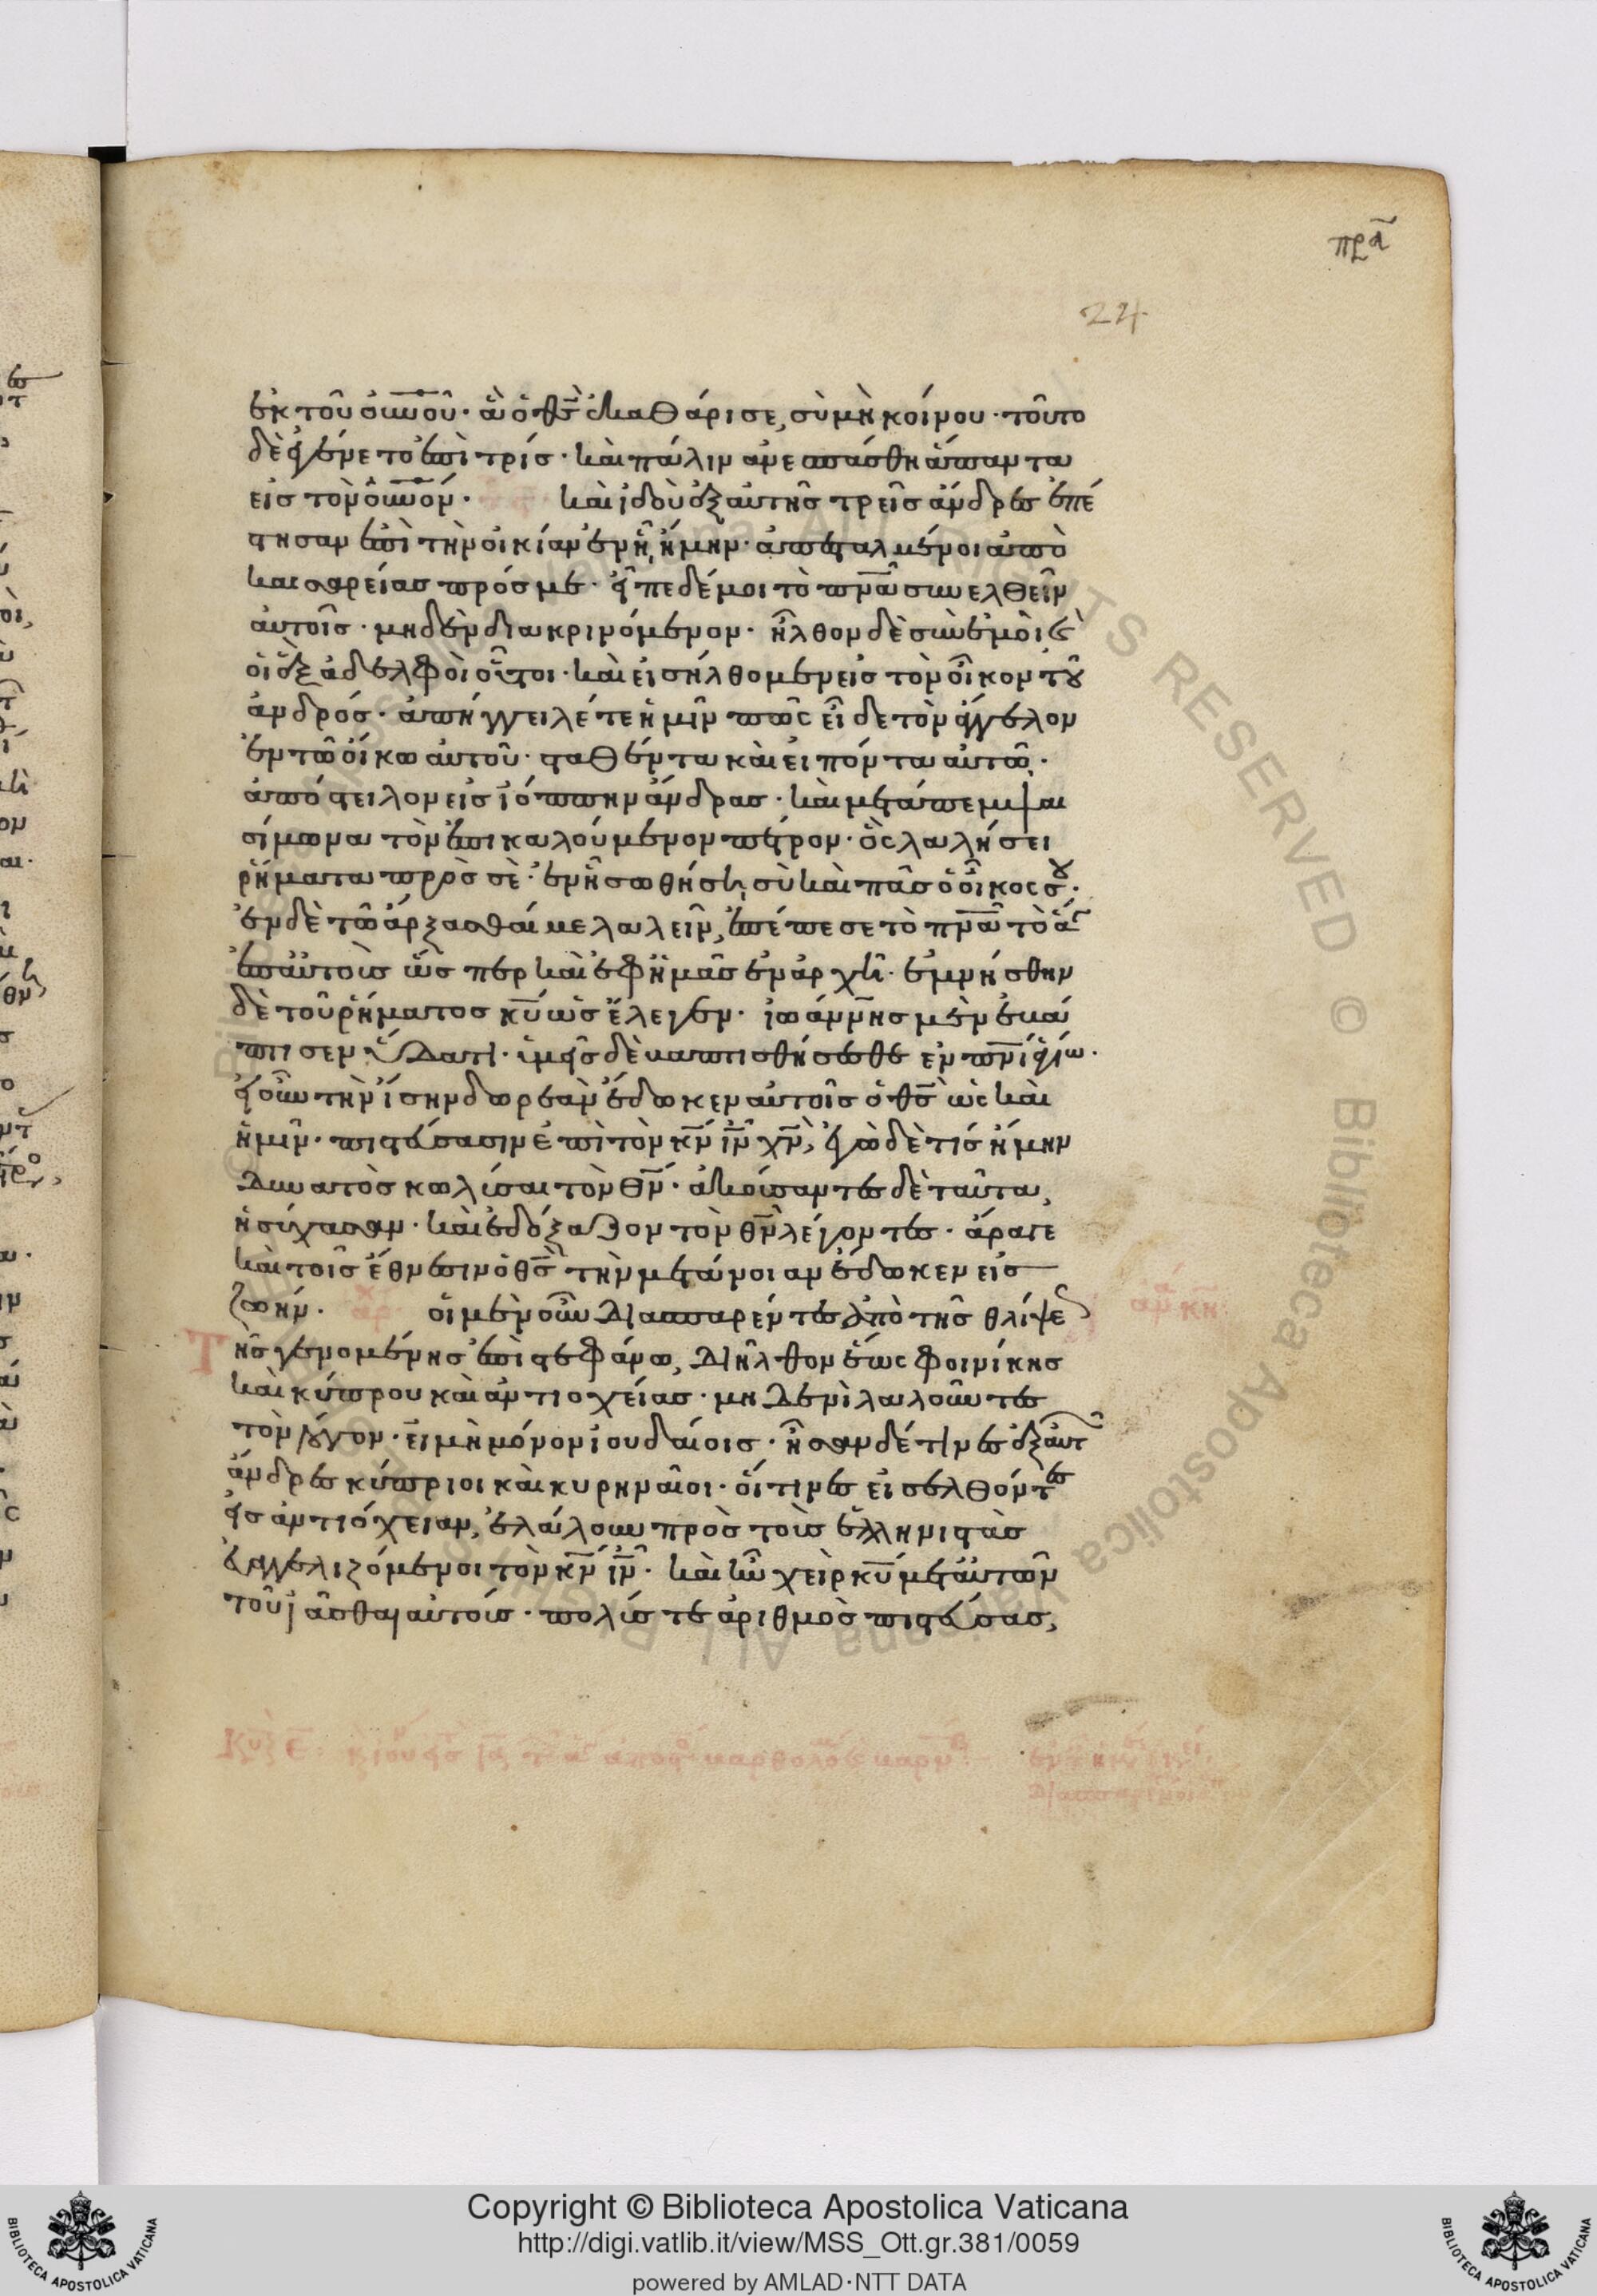 πρα̃
24
ἐκ τοῦ οὐνου̅· ἃ ὁ θς̅ ἐκαθάρισε, σὺ μὴ κοίνου· τοῦτο
δὲ ἐγένετο ἐπὶ τρίς· καὶ πάλιν ἀνεσπάσθη ἅπαντα
εἰς τὸν οὐνον̅· καὶ ἰδοὺ ἐξαυτῆς τρεῖς ἄνδρες ἐπέ
στησαν ἐπὶ τὴν οἰκίαν ἐν ᾗ ἤμην· ἀπεσταλμένοι ἀπὸ
καισαρείας πρός με· εἶπε δέ μοι τὸ πνα̅ συνελθεῖν
αὐτοῖς· μηδὲν διακρινόμενον· ἦλθον δὲ σὺν ἐμοὶ καὶ
οἱ ἓξ ἀδελφοὶ οὗτοι· καὶ εἰσήλθομεν εἰς τὸν οἶκον τοῦ
ἀνδρός· ἀπήγγειλέ τε ἡμῖν πῶς εἶδε τὸν ἄγγελον
ἐν τῶ οἴκω αὐτοῦ· σταθέντα καὶ εἰπόντα αὐτῶ·
ἀπόστειλον εἰς ἰόππην ἄνδρας· καὶ μετάπεμψαι
σίμωνα τὸν ἐπικαλούμενον πέτρον· ὃς λαλήσει
ῥήματα πρὸς σὲ· ἐν οἷς σωθήσῃ σὺ καὶ πᾶς ὁ οἶκός σου·
ἐν δὲ τῶ ἄρξασθαί με λαλεῖν, ἐπέπεσε τὸ πνα̅ τὸ ἅγ
ἐπ αὐτοὺς ὥσπερ καὶ ἐφ ἡμᾶς ἐν ἀρχῇ· ἐμνήσθην
δὲ τοῦ ῥήματος κυ̅ ὡς ἔλεγεν· ἰωάννης μὲν ἐβά
πτισεν ὕδατι· ὑμεῖς δὲ βαπτισθήσεσθε ἐν πνι̅ ἁγίω·
εἰ οὖν τὴν ἴσην δωρεὰν ἔδωκεν αὐτοῖς ὁ θς̅ ὡς καὶ
ἡμῖν· πιστεύσασιν ἐπὶ τὸν κν̅ ιν̅ χν̅, ἐγὼ δὲ τίς ἤμην
δυνατὸς κωλύσαι τὸν θν̅· ἀκούσαντες δὲ ταῦτα,
ἡσύχασαν· καὶ ἐδόξαζον τὸν θν̅ λέγοντες· ἄραγε
καὶ τοῖς ἔθνεσιν ὁ θς̅ τὴν μετάνοιαν ἔδωκεν εἰς
ζωήν· οἱ μὲν οὖν διασπαρέντες ἀπὸ τῆς θλίψε
ῆς γενομένης ἐπὶ στεφάνω, διῆλθον ἕως φοινίκης
καὶ κύπρου καὶ ἀντιοχείας· μηδενὶ λαλοῦντες
τὸν λόγον· εἰ μὴ μόνον ἰουδαίοις· ἦσαν δέ τινες ἐξ αὐτ
ἄνδρες κύπριοι καὶ κυρηναῖοι· οἵτινες εἰσελθόντες
εἰς ἀντιόχειαν, ἐλάλουν πρὸς τοὺς ἑλληνιστὰς
εὐαγγελιζόμενοι τὸν κν̅ ιν̅· καὶ ἦν χεὶρ κυ̅ μετ αὐτῶν
τοῦ ἰᾶσθαι αὐτούς· πολύς τε ἀριθμὸς πιστεύσας,
Copyright © Biblioteca Apostolica Vaticana
http://digi.vatlib.it/view/MSS_Ott.gr.381/0059
powered by AMLAD·NTT DATA